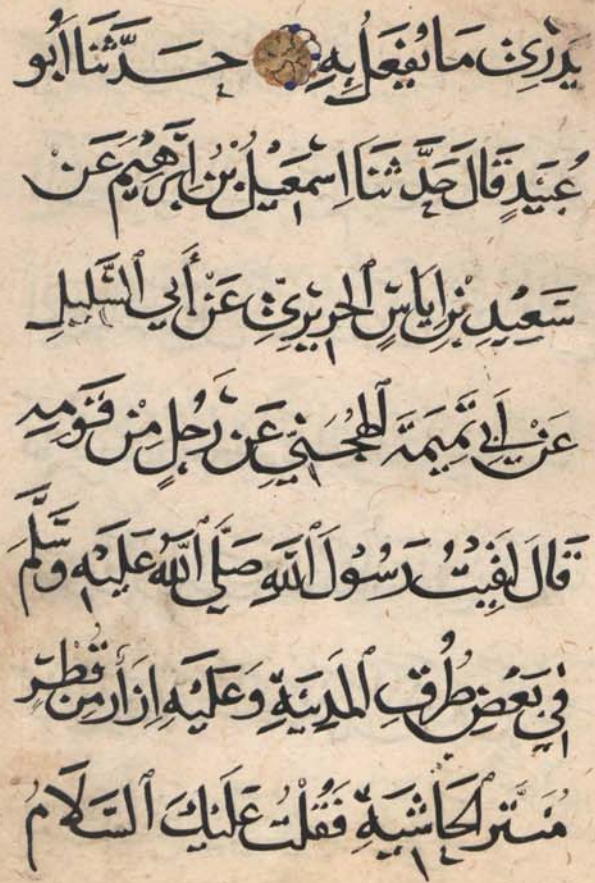 يَدْرِي مَا يُفْعَلُ بِهِ حَدَّثَنَا أَبُو
عُبَيْدٍ قَالَ حَدَّثَنَا اِسْمَعِيلُ بْنُ اِبْرَهِيمَ عَنْ
سَعِيدِ بْنِ اِيَاسٍ الْجُرَيْرِيِّ عَنْ أَبِي السَّلِيلِ
عَنْ اَبِي تَمِيمَةَ الْهُجَيْمِيِّ عَنْ رَجُلٍ مِنْ قَوْمِهِ
قَالَ لَقِيتُ رَسُولَ اللَّهِ صَلَّى اللَّهُ عَلَيْهِ وَسَلَّمَ
فِي بَعْضِ طُرُقِ الْمَدِينَةِ وَعَلَيْهِ اِزَارٌ مِنْ قُطْنٍ
الْحَاشِيَةِ فَقُلْتُ عَلَيْكَ السَّلَامُ